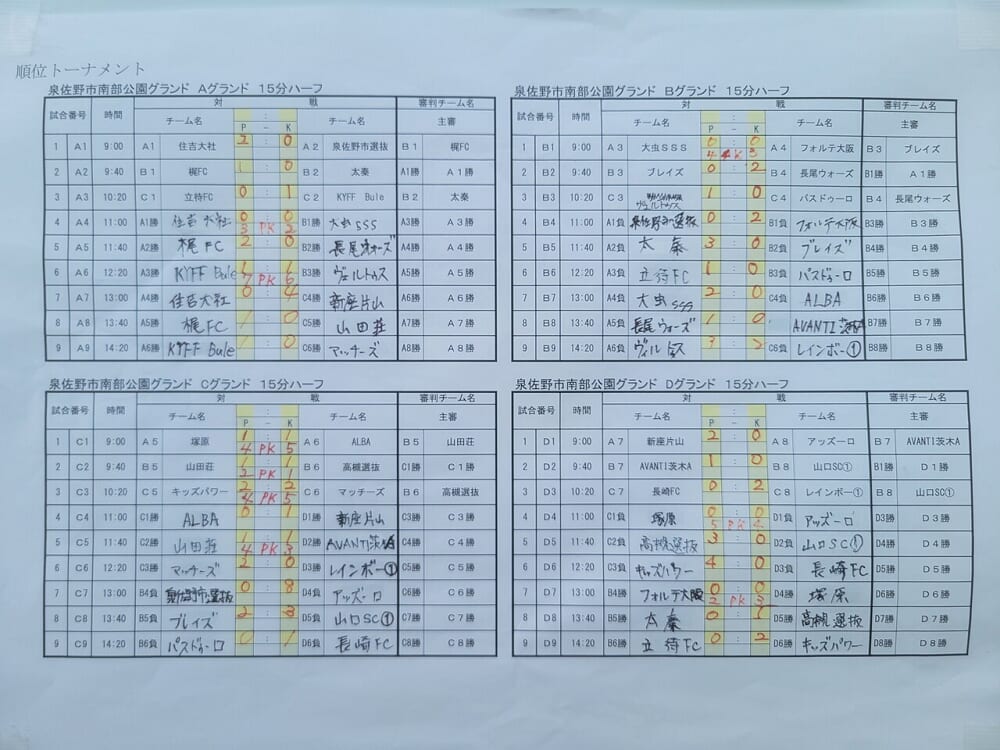 順位トーナメント
泉佐野市南部公園グランド Aグランド 15分ハーフ
試合番号 時間 対 戦 審判チーム名
チーム名 P － K チーム名 主審
1 A1 9:00 A1 住吉大社 2 : 0 A2 泉佐野市選抜 B1 梶FC
2 A2 9:40 B1 梶FC 1 : 0 B2 太秦 A1勝 A1勝
3 A3 10:20 C1 立待FC 0 : 1 C2 KYFF Bule B2 太秦
4 A4 11:00 A1勝 住吉大社 0 : 0 3 PK 2 B1勝 大虫sss A3勝 A3勝
5 A5 11:40 A2勝 梶FC 2 : 0 B2勝 長尾ウォーズ A4勝 A4勝
6 A6 12:20 A3勝 KYFF Bule 1 : 1 7 PK 6 B3勝 ヴェルトゥス A5勝 A5勝
7 A7 13:00 A4勝 住吉大社 0 : 4 C4勝 新座片山 A6勝 A6勝
8 A8 13:40 A5勝 梶FC 1 : 0 C5勝 山田荘 A7勝 A7勝
9 A9 14:20 A6勝 KYFF Bule 1 : 0 C6勝 マッチーズ A8勝 A8勝
泉佐野市南部公園グランド Bグランド 15分ハーフ
試合番号 時間 対 戦 審判チーム名
チーム名 P － K チーム名 主審
1 B1 9:00 A3 大虫SSS 0 : 0 4 PK 3 A4 フォルテ大阪 B3 ブレイズ
2 B2 9:40 B3 ブレイズ 0 : 2 B4 長尾ウォーズ B1勝 A1勝
3 B3 10:20 C3 ヴェルトゥス 1 : 0 C4 パスドゥーロ B4 長尾ウォーズ
4 B4 11:00 A1負 泉佐野市選抜 0 : 2 B1負 フォルテ大阪 B3勝 B3勝
5 B5 11:40 A2負 太秦 3 : 0 B2負 ブレイズ B4勝 B4勝
6 B6 12:20 A3負 立待FC 1 : 0 B3負 パスドゥーロ B5勝 B5勝
7 B7 13:00 A4負 大虫sss 2 : 0 C4負 ALBA B6勝 B6勝
8 B8 13:40 A5負 長尾ウォーズ 1 : 0 C5負 AVANTI茨木A B7勝 B7勝
9 B9 14:20 A6負 ヴィルトゥス 3 : 2 C6負 レインボー① B8勝 B8勝
泉佐野市南部公園グランド Cグランド 15分ハーフ
試合番号 時間 対 戦 審判チーム名
チーム名 P － K チーム名 主審
1 C1 9:00 A5 塚原 1 : 1 4 PK 5 A6 ALBA B5 山田荘
2 C2 9:40 B5 山田荘 1 : 1 2 PK 1 B6 高槻選抜 C1勝 C1勝
3 C3 10:20 C5 キッズパワー 2 : 2 4 PK 5 C6 マッチーズ B6 高槻選抜
4 C4 11:00 C1勝 ALBA 0 : 1 D1勝 新座片山 C3勝 C3勝
5 C5 11:40 C2勝 山田荘 1 : 1 4 PK 3 D2勝 AVANTI茨木A C4勝 C4勝
6 C6 12:20 C3勝 マッチーズ 2 : 0 D3勝 レインボー① C5勝 C5勝
7 C7 13:00 B4負 泉佐野市選抜 0 : 8 D4負 アッズーロ C6勝 C6勝
8 C8 13:40 B5負 ブレイズ 2 : 3 D5負 山口SC① C7勝 C7勝
9 C9 14:20 B6負 パスドゥーロ 0 : 1 D6負 長崎FC C8勝 C8勝
泉佐野市南部公園グランド Dグランド 15分ハーフ
試合番号 時間 対 戦 審判チーム名
チーム名 P － K チーム名 主審
1 D1 9:00 A7 新座片山 2 : 0 A8 アッズーロ B7 AVANTI茨木A
2 D2 9:40 B7 AVANTI茨木A 1 : 0 B8 山口SC① B1勝 D1勝
3 D3 10:20 C7 長崎FC 0 : 2 C8 レインボー① B8 山口SC①
4 D4 11:00 C1負 塚原 0 : 0 5 PK 4 D1負 アッズーロ D3勝 D3勝
5 D5 11:40 C2負 高槻選抜 3 : 0 D2負 山口SC① D4勝 D4勝
6 D6 12:20 C3負 キッズパワー 4 : 0 D3負 長崎FC D5勝 D5勝
7 D7 13:00 B4勝 フォルテ大阪 0 : 0 2 PK 3 D4勝 塚原 D6勝 D6勝
8 D8 13:40 B5勝 太秦 0 : 1 D5勝 高槻選抜 D7勝 D7勝
9 D9 14:20 B6勝 立待FC 0 : 2 D6勝 キッズパワー D8勝 D8勝